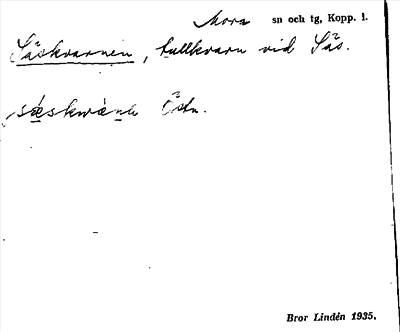 Mora sn och tg, Kopp. l.
Såskvarnen, tullkvarn vid Sås.
Östn.
Bror Lindén 1935.